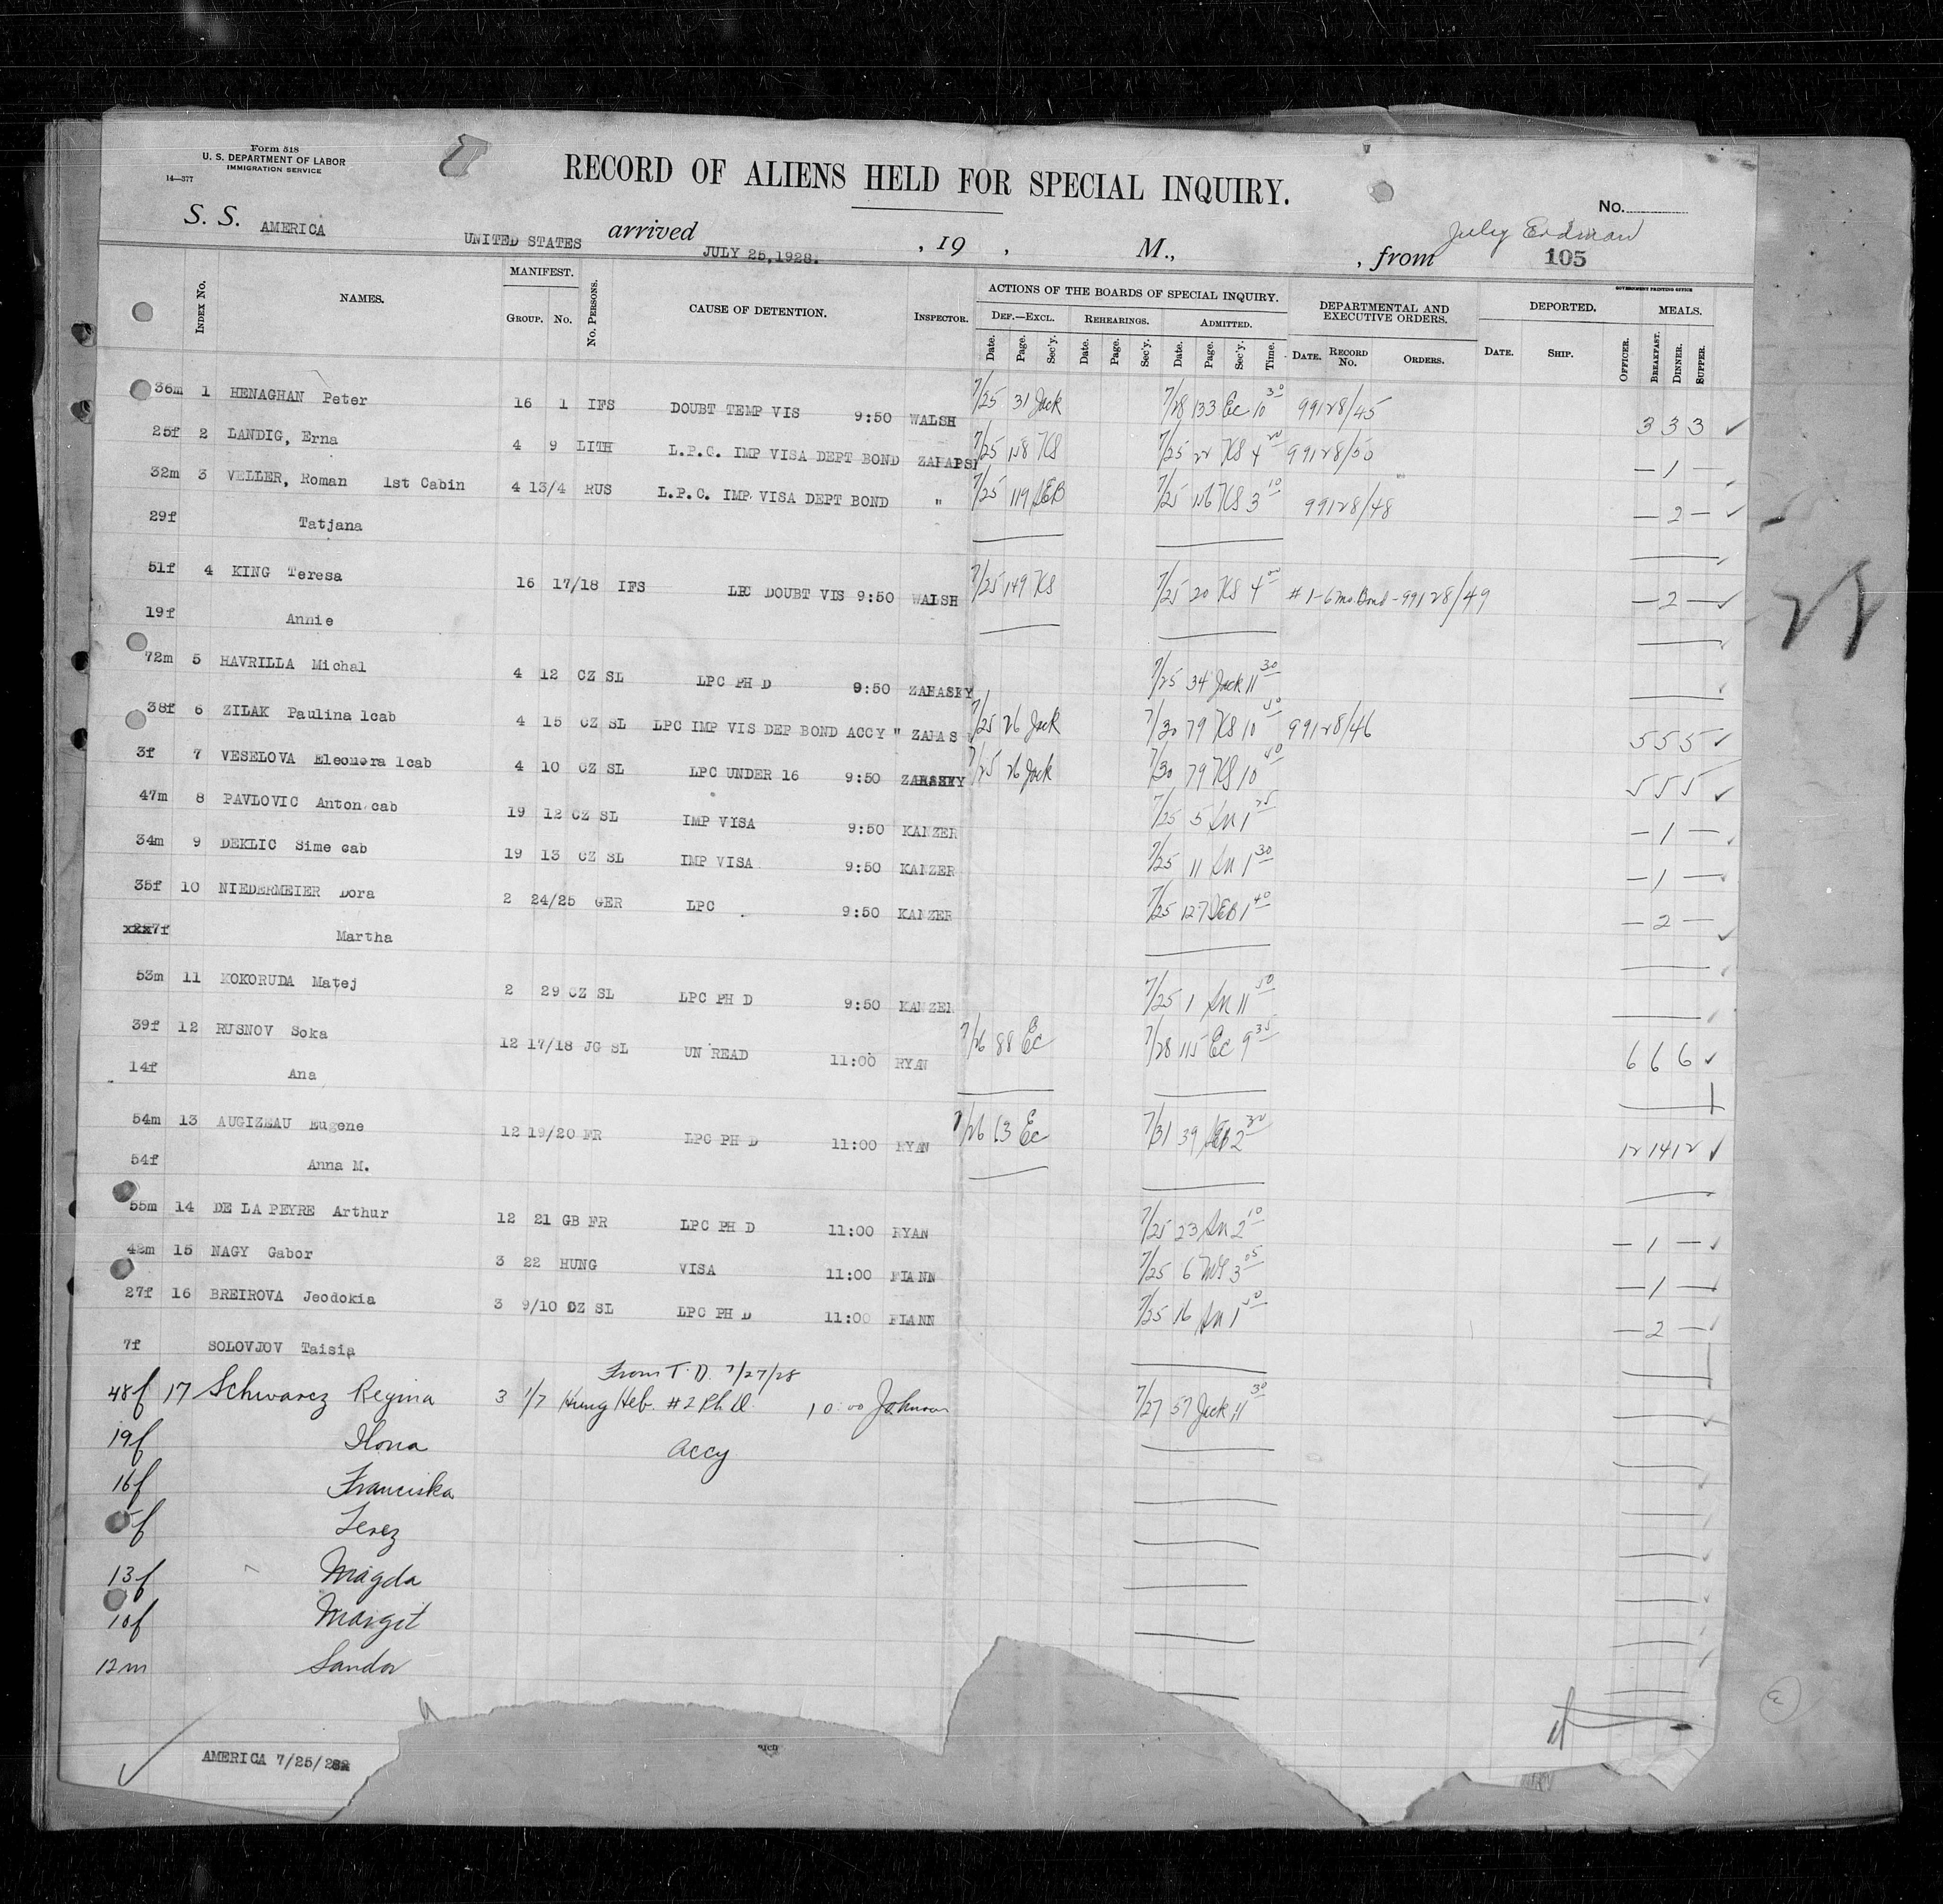 Form 518
U. S. DEPARTMENT OF LABOR
IMMIGRATION SERVICE
14—377
RECORD OF ALIENS HELD FOR SPECIAL INQUIRY.
No.
S. S. AMERICA UNITED STATES arrived JULY 25, 1928. , 19 , M., , from July Erdman
105
GOVERNMENT PRINTING OFFICE
Index No. NAMES. MANIFEST. Group. No. No. Persons. CAUSE OF DETENTION. Inspector. ACTIONS OF THE BOARDS OF SPECIAL INQUIRY. DEPARTMENTAL AND EXECUTIVE ORDERS. DEPORTED. MEALS.
Def.—Excl. Rehearings. Admitted.
Date. Page. Sec'y. Date. Page. Sec'y. Date. Page. Sec'y. Time. Date. Record No. Orders. Date. Ship. Officer. Breakfast. Dinner. Supper.
36m 1 HENAGHAN Peter 16 1 IFS DOUBT TEMP VIS 9:50 WALSH 7/25 31 Jack 7/28 133 Ec 10 30 99128/45 3 3 3 ✓
25f 2 LANDIG, Erna 4 9 LITH L.P.C. IMP VISA DEPT BOND 7/25 KS 7/25 22 KS 4 20 99128/50 — 1 —
32m 3 VELLER, Roman 1st Cabin 4 13/4 RUS L.P.C. IMP VISA DEPT BOND " 7/25 119 SEB 7/25 KS 3 10 99128/48 — 2 — ✓
29f Tatjana
51f 4 KING Teresa 16 17/18 IFS LPC DOUBT VIS 9:50 WALSH 7/25 149 KS 7/25 20 KS 4 00 #1-6 mo. Bond - 99128/49 — 2 — ✓
19f Annie
72m 5 HAVRILLA Michal 4 12 CZ SL LPC PH D 9:50 ZAHASKY 7/25 34 Jack 11 30
38f 6 ZILAK Paulina 1cab 4 15 CZ SL LPC IMP VIS DEP BOND ACCY " ZAHAS 7/25 26 Jack 7/30 79 KS 10 50 99128/46 5 5 5 ✓
3f 7 VESELOVA Eleonora 1cab 4 10 CZ SL LPC UNDER 16 9:50 ZAHASKY 7/25 26 Jack 7/30 79 KS 10 50 5 5 5 ✓
47m 8 PAVLOVIC Anton cab 19 12 CZ SL IMP VISA 9:50 KANZER 7/25 5 1 25 — 1 —
34m 9 DEKLIC Sime cab 19 13 CZ SL IMP VISA 9:50 KANZER 7/25 11 1 30 — 1 —
35f 10 NIEDERMEIER Dora 2 24/25 GER LPC 9:50 KANZER 7/25 127 SEB 1 40 — 2 —
7f Martha
53m 11 KOKORUDA Matej 2 29 CZ SL LPC PH D 9:50 KANZER 7/25 1 11 50
39f 12 RUSNOV Soka 12 17/18 JG SL UN READ 11:00 RYAN 7/26 88 Ec 7/28 115 Ec 9 35 6 6 6 ✓
14f Ana
54m 13 AUGIZEAU Eugene 12 19/20 FR LPC PH D 11:00 RYAN 7/26 63 Ec 7/31 39 SEB 2 30 12 14 12 ✓
54f Anna M.
55m 14 DE LA PEYRE Arthur 12 21 GB FR LPC PH D 11:00 RYAN 7/25 23 2 10 — 1 — ✓
42m 15 NAGY Gabor 3 22 HUNG VISA 11:00 FLANN 7/25 6 3 05 — 1 — ✓
27f 16 BREIROVA Jeodokia 3 9/10 CZ SL LPC PH D 11:00 FLANN 7/25 16 1 50 — 2 — ✓
7f SOLOVJOV Taisia
From T. D. 7/27/28
48f 17 Schwarcz Regina 3 1/7 Hung Heb. #2 Ph D. 10:00 Johnson 7/27 57 Jack 11 30
19f Ilona Accy
16f Franciska
5f Terez
13f Magda
10f Margit
12m Sandor
AMERICA 7/25/28